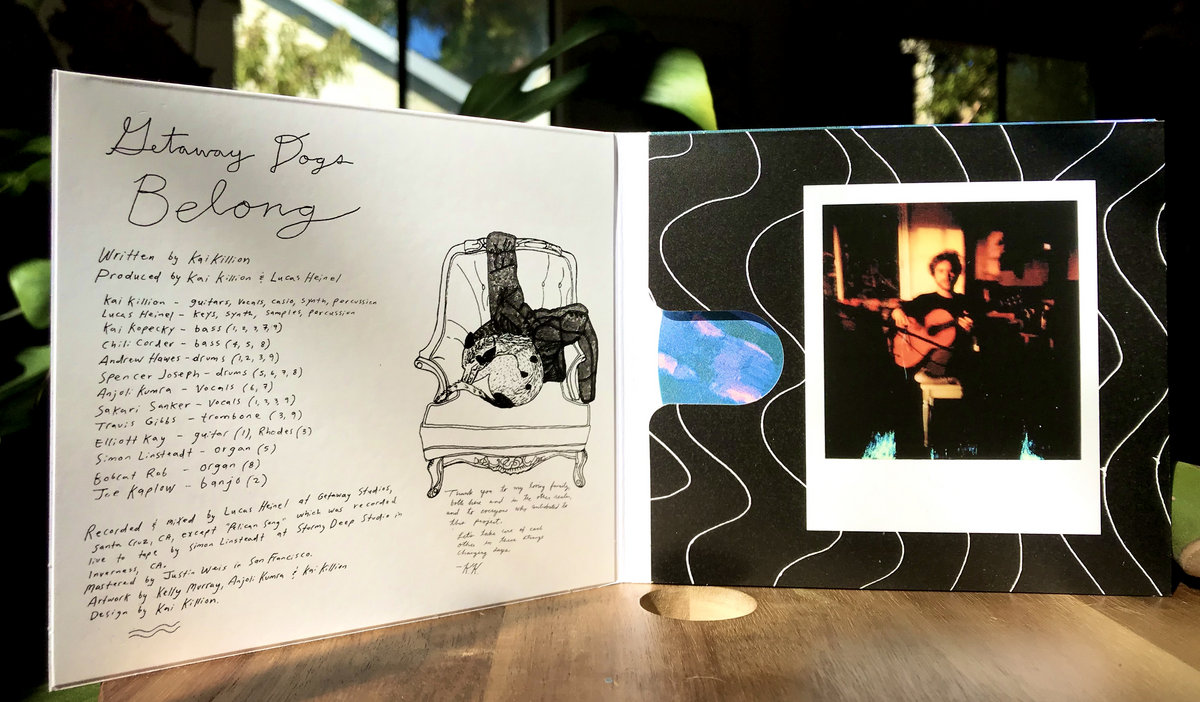 Getaway Dogs
Belong
Written by Kai Killion
Produced by Kai Killion & Lucas Heinel
Kai Killion - guitars, vocals, casio, synth, percussion
Lucas Heinel - keys, synth, samples, percussion
Kai Kopecky - bass (1, 2, 3, 7, 9)
Chili Corder - bass (4, 5, 8)
Andrew Hawes - drums (1, 2, 3, 9)
Spencer Joseph - drums (5, 6, 7, 8)
Anjoli Kumra - Vocals (6, 7)
Sakari Sanker - Vocals (1, 3, 3, 9)
Travis Gibbs - trombone (3, 9)
Elliott Kay - guitar (1), Rhodes (3)
Simon Linsteadt - organ (5)
Bobcat Rob - organ (8)
Joe Kaplow - banjo (2)
Recorded & mixed by Lucas Heinel at Getaway Studios,
Santa Cruz, CA, except "Pelican Song" which was recorded
live to tape by Simon Linsteadt at Stormy Deep Studio in
Inverness, CA.
Mastered by Justin Weis in San Francisco.
Artwork by Kelly Murray, Anjoli Kumra & Kai Killion
Design by Kai Killion.
Thank you to my loving family,
both here and in the other realm,
and to everyone who contributed to
this project.
Let's take care of each
other in these strange
changing days.
-KK